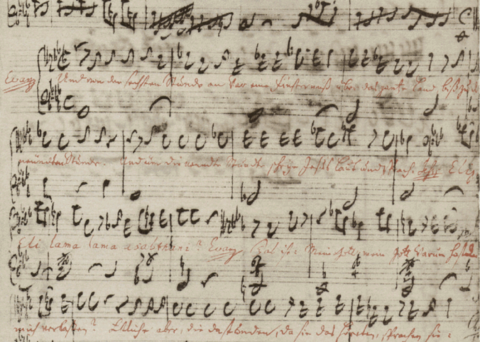 Evang. Und von der sechsten Stunde an war eine Finsterniß über das gantze Land biß zu der
neunten Stunde. Und um die neunte Stunde schrie Jesus laut und sprach: Eli,
Eli lama lama asabthani? Evang. Das ist: Mein Gott, mein Gott, warum hast du
mich verlassen? Etliche aber, die da stunden, da sie das höreten, sprachen sie: